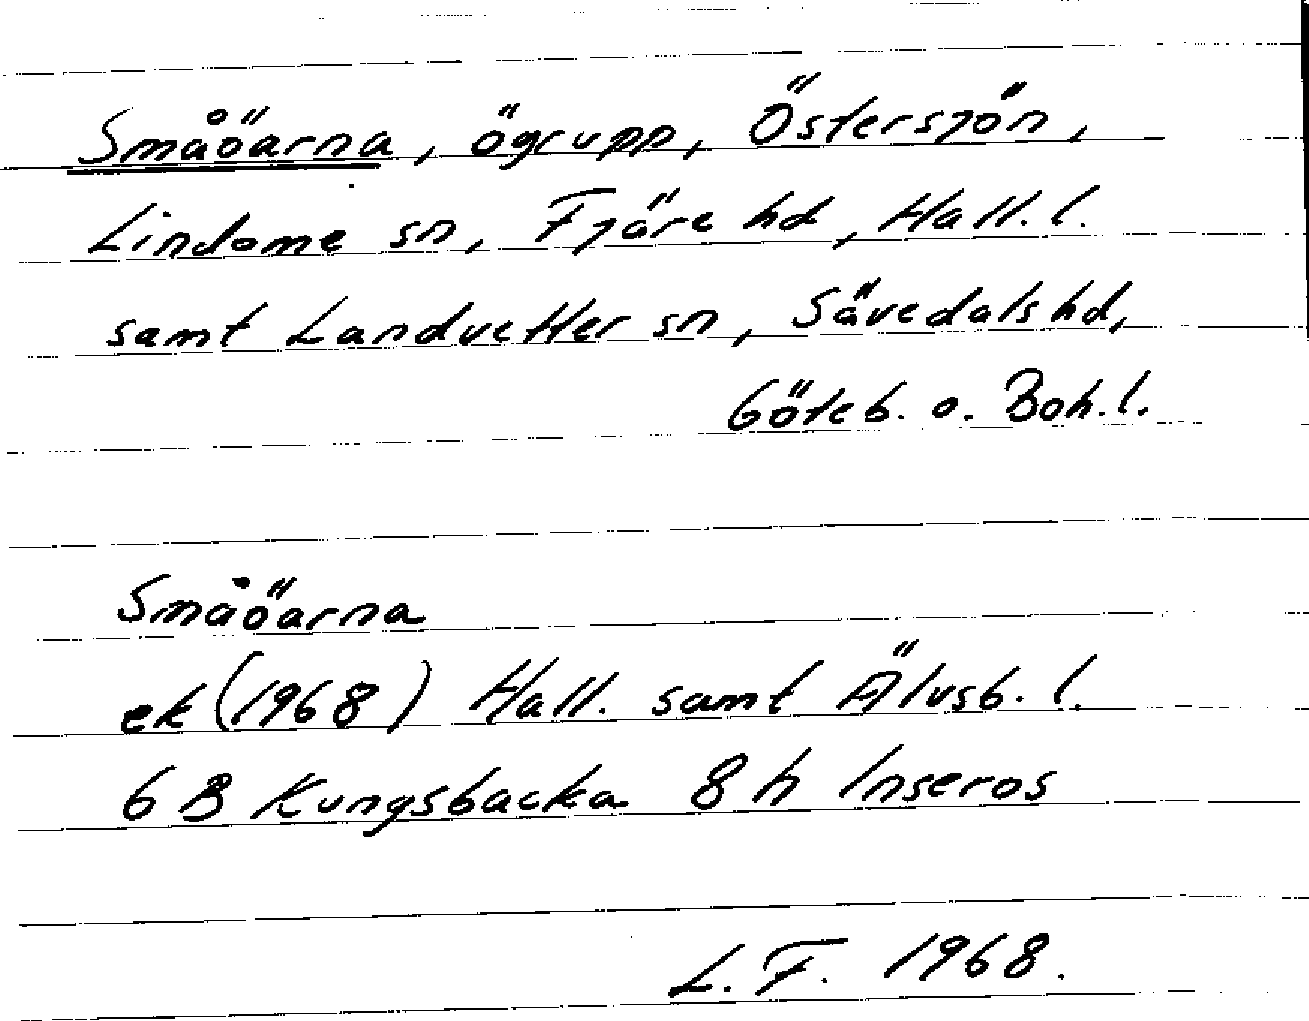 Småöarna, ögrupp, Östersjön,
Lindome sn, Fjäre hd, Hall. l.
samt Landvetter sn, Sävedals hd,
Göteb. o. Boh. l.
Småöarna
ek (1968) Hall. samt Älvsb. l.
6 B Kungsbacka 8 h Inseros
L. F. 1968.